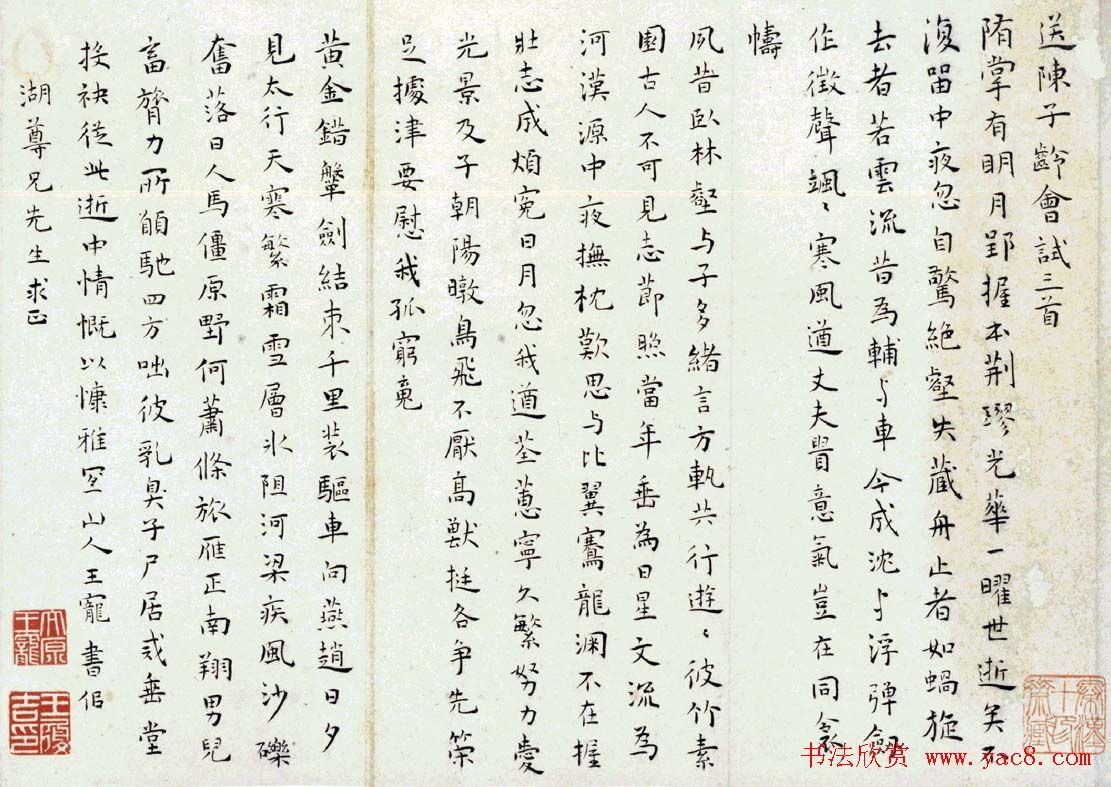 送陳子齡會試三首
隋掌有明月郢握本荆璆光華一曜世逝矣不
復留中夜忽自驚絶壑失藏舟止者如蝸旋
去者若雲流昔為輔与車今成沈与浮彈劍
作徵聲颯〻寒風遒丈夫貴意氣豈在同衾
幬
夙昔臥林壑与子多緒言方軌共行遊〻彼竹素
園古人不可見志節照當年垂為日星文流為
河漢源中夜撫枕歎思与比翼騫龍淵不在握
壯志成煩冤日月忽我遒荃蕙寧久繁努力愛
光景及子朝陽暾鳥飛不厭高獸挺各争先策
足據津要慰我孤窮䰟
黄金錯鞶劍結束千里装驅車向燕趙日夕
見太行天寒繁霜雪層氷阻河梁疾風沙礫
奮落日人馬僵原野何蕭條旅雁正南翔男兒
畜膂力所願馳四方咄彼乳臭子尸居戒垂堂
挍袂從此逝中情慨以慷雅宜山人王寵書似
湖尊兄先生求正
太原王寵
王履吉印
书法欣赏 www.yac8.com